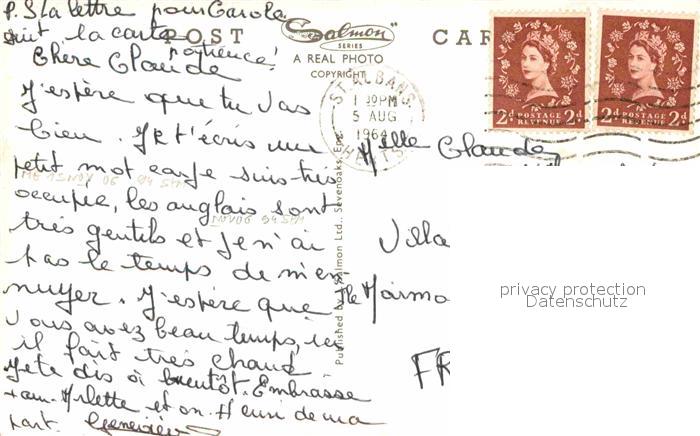 P.S La lettre pour Carole
suit la carte
patience!
POST CAR
"Salmon"
SERIES
A REAL PHOTO
COPYRIGHT
Chère Claude
J'espère que tu vas
bien. Je t'écris un
petit mot car je suis très
occupée, les anglais sont
très gentils et je n'ai
pas le temps de m'en
nuyer. J'espère que
vous avez beau temps, ici
il fait très chaud
Je te dis à bientôt. Embrasse
Arlette et on. Henri de ma
part. Geneviève
Published by J. Salmon Ltd., Sevenoaks, Eng.
ST. ALBANS
1 30PM
5 AUG
1964
HERTS
2d POSTAGE REVENUE 2d
2d POSTAGE REVENUE 2d
Melle Claude
Villa
FR
privacy protection
Datenschutz